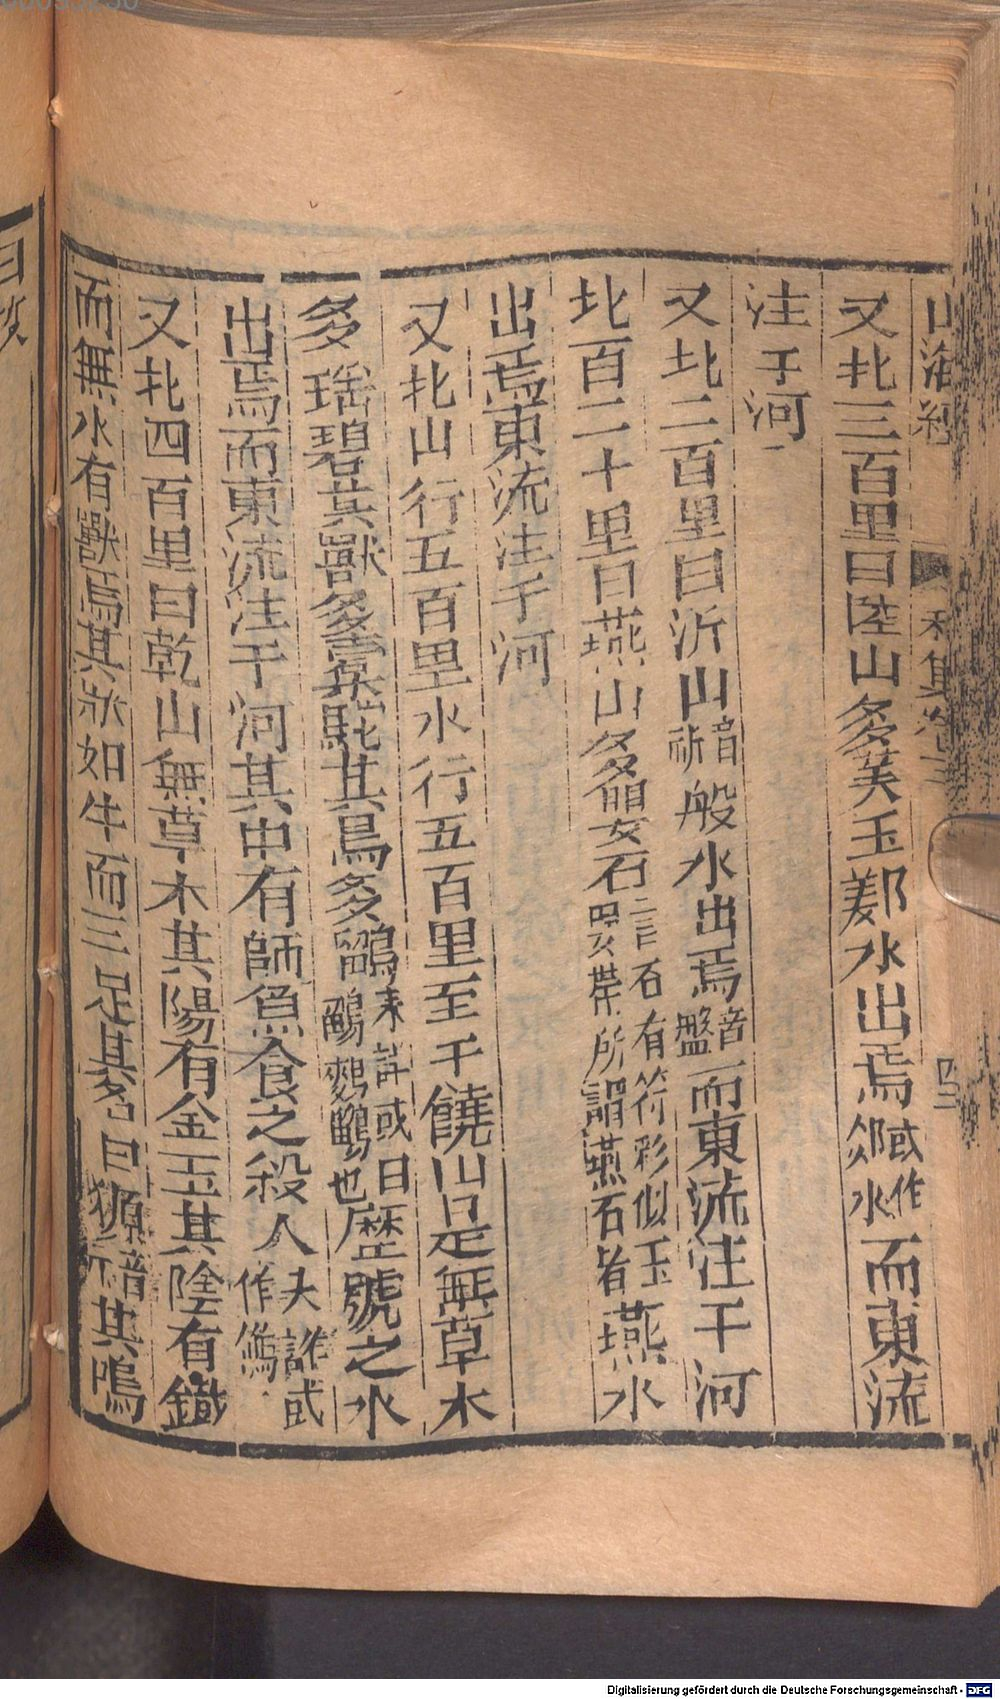 山海經
卷二
四二
又北三百里曰陸山多美玉䣌水出焉或作郯水而東流
注于河
又北二百里曰沂山音祈般水出焉音盤而東流注于河
北百二十里曰燕山多嬰石言石有符彩似玉嬰帶所謂燕石者燕水
出焉東流注于河
又北山行五百里水行五百里至于饒山是無草木
多瑤碧其獸多橐駝其鳥多鶹未詳或曰鶹鵂鶹也歷號之水
出焉而東流注于河其中有師魚食之殺人未詳或作鯢
又北四百里曰乾山無草木其陽有金玉其陰有鐵
而無水有獸焉其狀如牛而三足其名曰獂音元其鳴
Digitalisierung gefördert durch die Deutsche Forschungsgemeinschaft - DFG